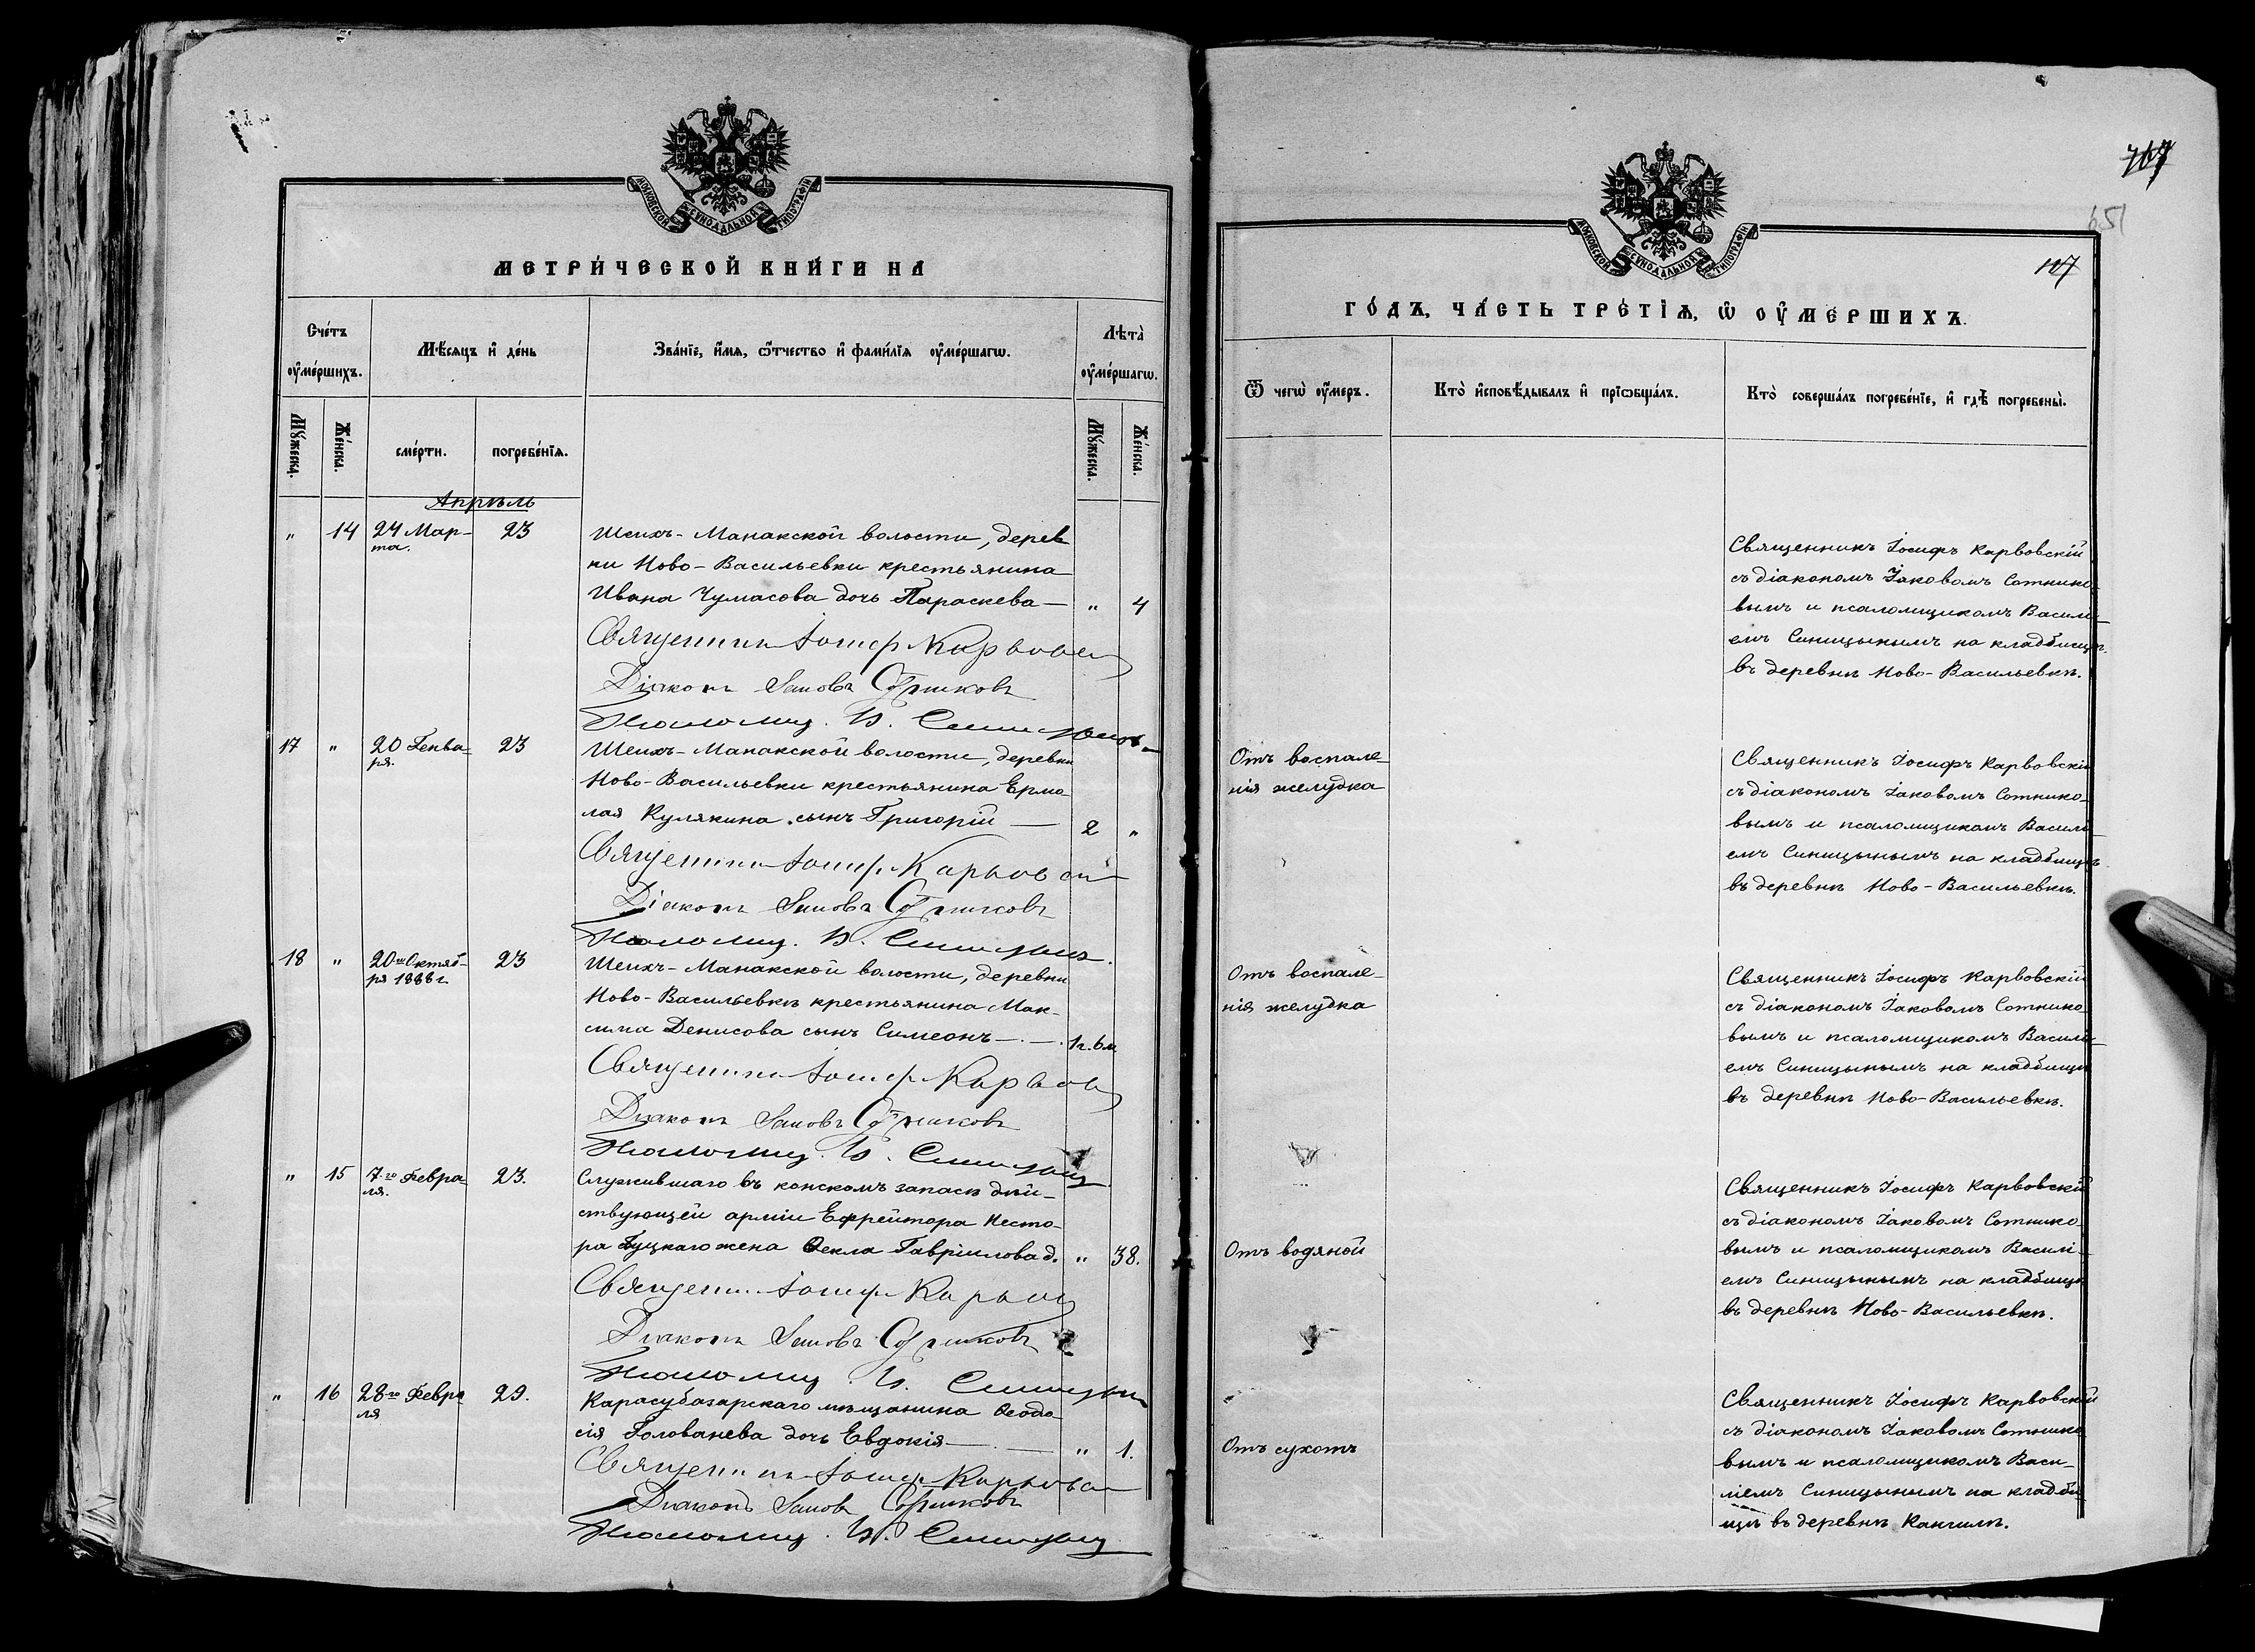 МОСКОВСКОЙ СѴНОДАЛЬНОЙ ТИПОГРАФІИ
МЕТРИ́ЧЕСКОЙ КНИ́ГИ НА
Сче́тъ ᲂу҆ме́ршихъ.
Мѣ́сяцъ и҆ де́нь
Зва́нїе, и҆́мѧ, ѻ҆́тчество и҆ фами́лїѧ ᲂу҆ме́ршагѡ.
Лѣта̀ ᲂу҆ме́ршагѡ.
Мꙋ́жеска.
Же́нска.
сме́рти.
погребе́нїѧ.
Мꙋ́жеска.
Же́нска.
Апрѣль
" 14 24 Мар-
та.
23
Шеихъ-Манакской волости, дерев
ни Ново-Васильевки крестьянина
Ивана Чумасова дочь Параскева — " 4
Священникъ Іосифъ Карвовскій
Діаконъ Іаковъ Сотниковъ
Псаломщ. В. Синицынъ
17 " 20 Генва-
ря.
23
Шеихъ-Манакской волости, деревни
Ново-Васильевки крестьянина Ермо
лая Кулякина сынъ Григорій — 2 "
Священникъ Іосиф. Карвовскій
Діаконъ Іаковъ Сотниковъ
Псаломщ. В. Синицынъ.
18 " 20го Октяб-
ря 1888 г.
23
Шеихъ-Манакской волости, деревни
Ново-Васильевкѣ крестьянина Мак-
сима Денисова сынъ Симеонъ — 1 г. 6 м
Священникъ Іосифъ Карвовскій
Діаконъ Іаковъ Сотниковъ
Псаломщ. В. Синицынъ
" 15 7-го Февра-
ля.
23.
Служившаго въ конскомъ запасѣ дѣй-
ствующей арміи Ефрейтора Несто-
ра жена Ѳекла Гавріилова д. " 38.
Священникъ Іосифъ Карвовскій
Діаконъ Іаковъ Сотниковъ
Псаломщ. В. Синицынъ
" 16 28-го Февра
ля
29.
Карасубазарскаго мѣщанина Ѳеодо-
сія Голованева дочь Евдокія — " 1.
Священникъ Іосифъ Карвовскій
Діаконъ Іаковъ Сотниковъ
Псаломщ. В. Синицынъ
767
651
117
МОСКОВСКОЙ СѴНОДАЛЬНОЙ ТИПОГРАФІИ
ГО́ДЪ, ЧА́СТЬ ТРЕ́ТЇѦ, Ѡ҆ ОУ҆МЕ́РШИХЪ.
Ѿ чегѡ̀ ᲂу҆́меръ.
Кто̀ и҆сповѣ́дывалъ и҆ прїѡбща́лъ.
Кто̀ соверша́лъ погребе́нїе, и҆ гдѣ̀ погребены̀.
Священникъ Іосифъ Карвовскій
съ діакономъ Іаковомъ Сотнико-
вымъ и псаломщикомъ Васили-
емъ Синицынымъ на кладбищѣ
въ деревнѣ Ново-Васильевкѣ.
Отъ воспале-
нія желудка
Священникъ Іосифъ Карвовскій
съ діакономъ Іаковомъ Сотнико-
вымъ и псаломщикомъ Васили-
емъ Синицынымъ на кладбищѣ
въ деревнѣ Ново-Васильевкѣ.
Отъ воспале-
нія желудка
Священникъ Іосифъ Карвовскій
съ діакономъ Іаковомъ Сотнико
вымъ и псаломщикомъ Васили-
емъ Синицынымъ на кладбищѣ
въ деревнѣ Ново-Васильевкѣ.
Отъ водяной
Священникъ Іосифъ Карвовскій
съ діакономъ Іаковомъ Сотнико
вымъ и псаломщикомъ Василі-
емъ Синицынымъ на кладбищѣ
въ деревнѣ Ново-Васильевкѣ.
Отъ сухотъ
Священникъ Іосифъ Карвовскій
съ діакономъ Іаковомъ Сотнико
вымъ и псаломщикомъ Васи-
ліемъ Синицынымъ на кладби-
щѣ въ деревнѣ Канчилѣ.